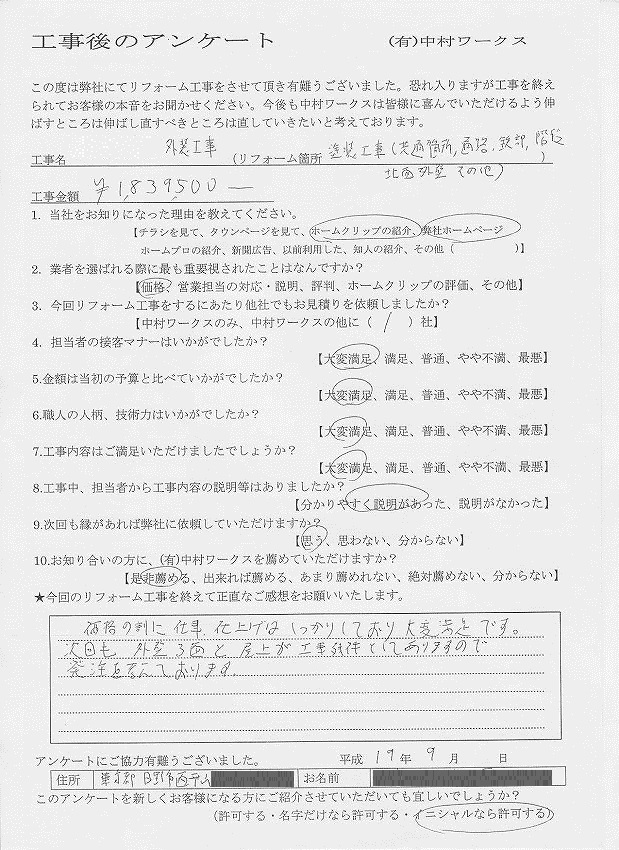 工事後のアンケート (有)中村ワークス
この度は弊社にてリフォーム工事をさせて頂き有難うございました。恐れ入りますが工事を終え
られてお客様の本音をお聞かせください。今後も中村ワークスは皆様に喜んでいただけるよう伸
ばすところは伸ばし直すべきところは直していきたいと考えております。
工事名 外装工事 (リフォーム箇所 塗装工事(共通箇所, 通路, 鉄部, 階段
北面外壁 その他) )
工事金額 ¥1,839,500—
1. 当社をお知りになった理由を教えてください。
【チラシを見て、タウンページを見て、ホームクリップの紹介、弊社ホームページ
ホームプロの紹介、新聞広告、以前利用した、知人の紹介、その他( )】
2. 業者を選ばれる際に最も重要視されたことはなんですか?
【価格、営業担当の対応・説明、評判、ホームクリップの評価、その他】
3. 今回リフォーム工事をするにあたり他社でもお見積りを依頼しましたか?
【中村ワークスのみ、中村ワークスの他に( 1 )社】
4. 担当者の接客マナーはいかがでしたか?
【大変満足、満足、普通、やや不満、最悪】
5.金額は当初の予算と比べていかがでしたか?
【大変満足、満足、普通、やや不満、最悪】
6.職人の人柄、技術力はいかがでしたか?
【大変満足、満足、普通、やや不満、最悪】
7.工事内容はご満足いただけましたでしょうか?
【大変満足、満足、普通、やや不満、最悪】
8.工事中、担当者から工事内容の説明等はありましたか?
【分かりやすく説明があった、説明がなかった】
9.次回も縁があれば弊社に依頼していただけますか?
【思う、思わない、分からない】
10.お知り合いの方に、(有)中村ワークスを薦めていただけますか?
【是非薦める、出来れば薦める、あまり薦めれない、絶対薦めない、分からない】
★今回のリフォーム工事を終えて正直なご感想をお願いいたします。
価格の割に仕事、仕上げはしっかりしており大変満足です。
次回も外壁3面と屋上が工事残件としてありますので
発注を考えております。
アンケートにご協力有難うございました。 平成 19 年 9 月 日
住所 東京都 日野市西平山 お名前
このアンケートを新しくお客様になる方にご紹介させていただいても宜しいでしょうか?
(許可する・名字だけなら許可する・イニシャルなら許可する)